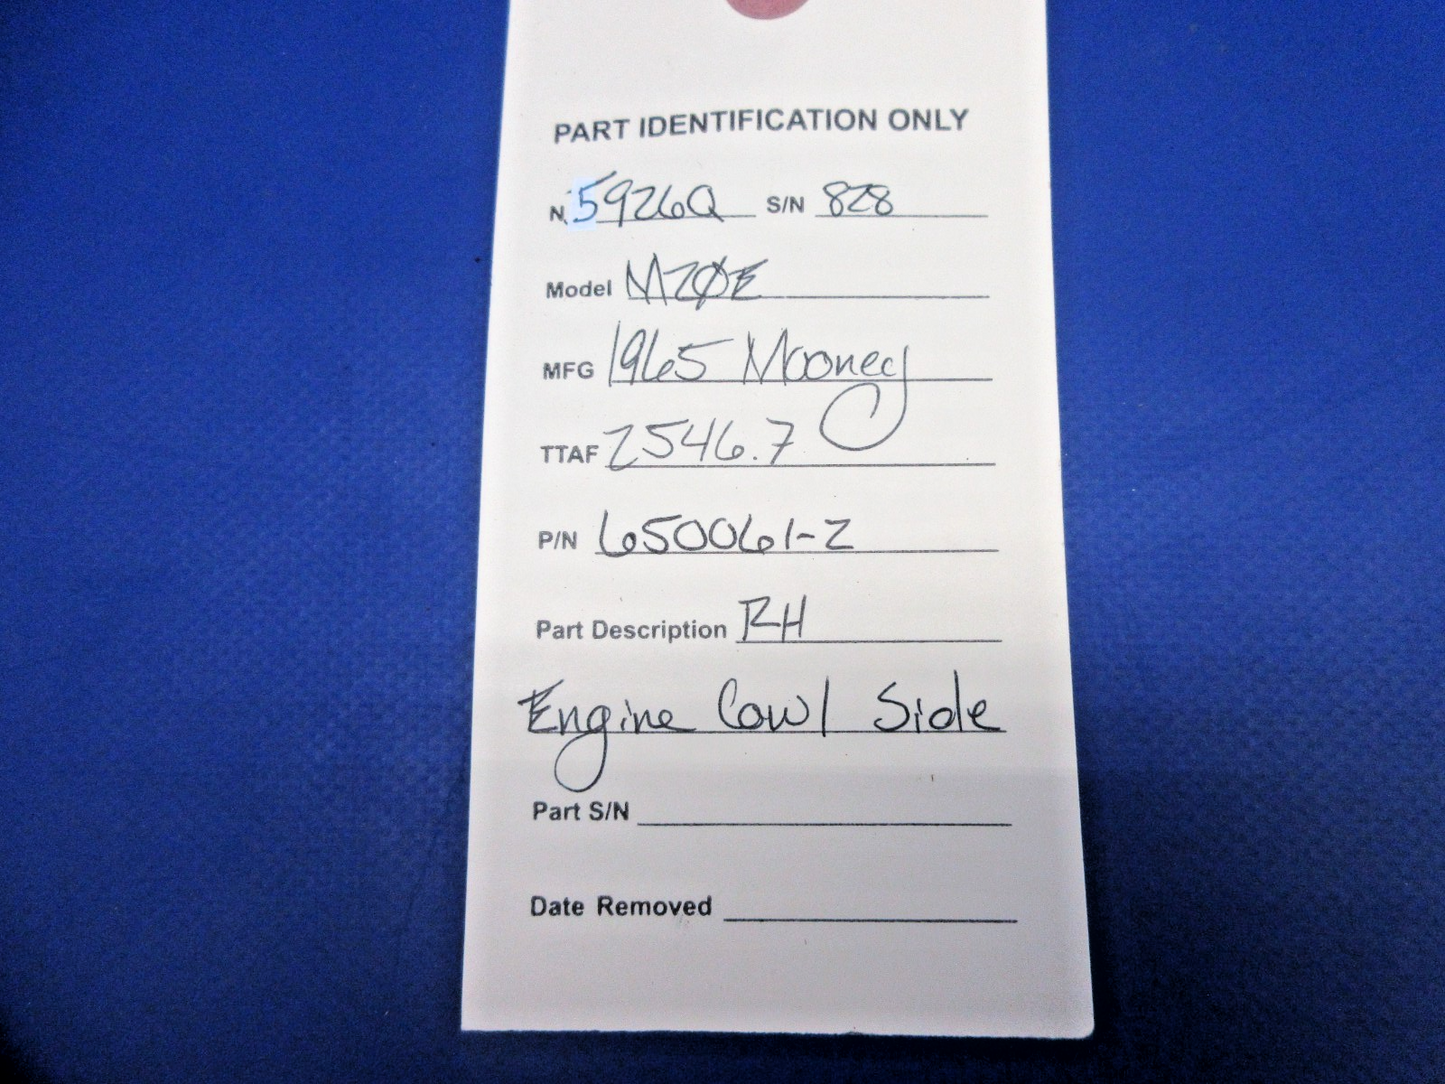 PART IDENTIFICATION ONLY
N 5926Q S/N 828
Model M20E
MFG 1965 Mooney
TTAF 2546.7
P/N 650061-2
Part Description RH
Engine Cowl Side
Part S/N
Date Removed